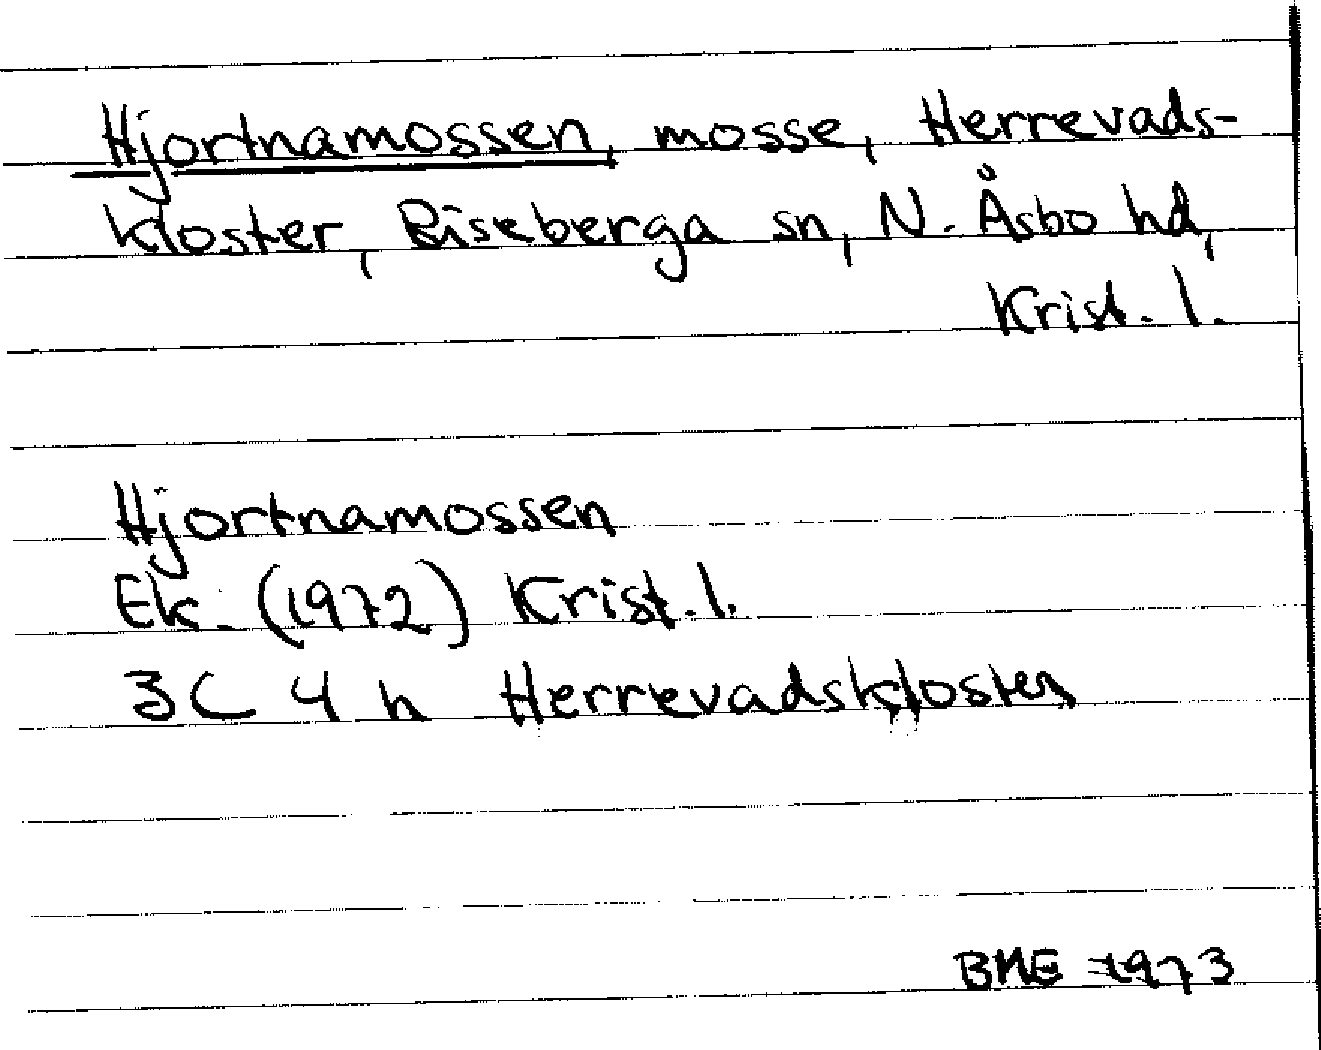 Hjortnamossen, mosse, Herrevads-
kloster, Riseberga sn, N. Åsbo hd,
Krist. l.
Hjortnamossen
Ek. (1972) Krist. l.
3C 4 h Herrevadskloster
BME 1973